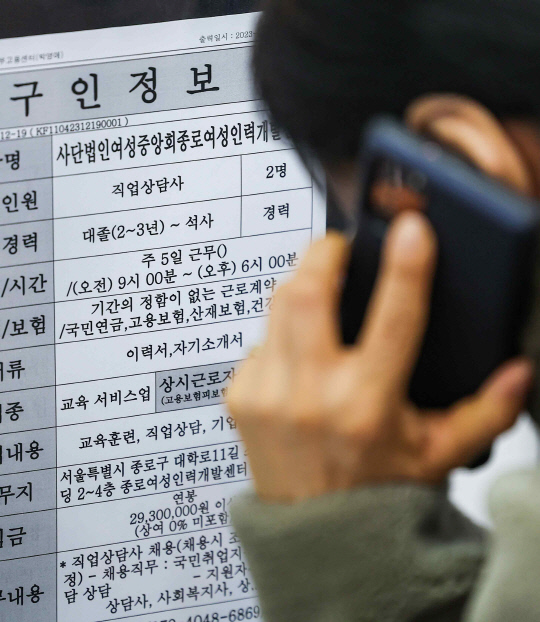 출력일시 : 2023-
구인정보
12-19 ( KF11042312190001 )
명 사단법인여성중앙회종로여성인력개발
인원 직업상담사 2명
경력 대졸(2~3년) ~ 석사 경력
/시간 주 5일 근무()
/(오전) 9시 00분 ~ (오후) 6시 00분
/보험 기간의 정함이 없는 근로계약
/국민연금,고용보험,산재보험,건강
서류 이력서,자기소개서
업종 교육 서비스업 상시근로자
(고용보험피보험
내용 교육훈련, 직업상담, 기업
근무지 서울특별시 종로구 대학로11길
딩 2~4층 종로여성인력개발센터
임금 연봉
29,300,000원 이상
(상여 0% 미포함)
내용 * 직업상담사 채용(채용시 조
정) - 채용직무 : 국민취업지
담 상담 - 지원자
상담사, 사회복지사, 상
4048-6869